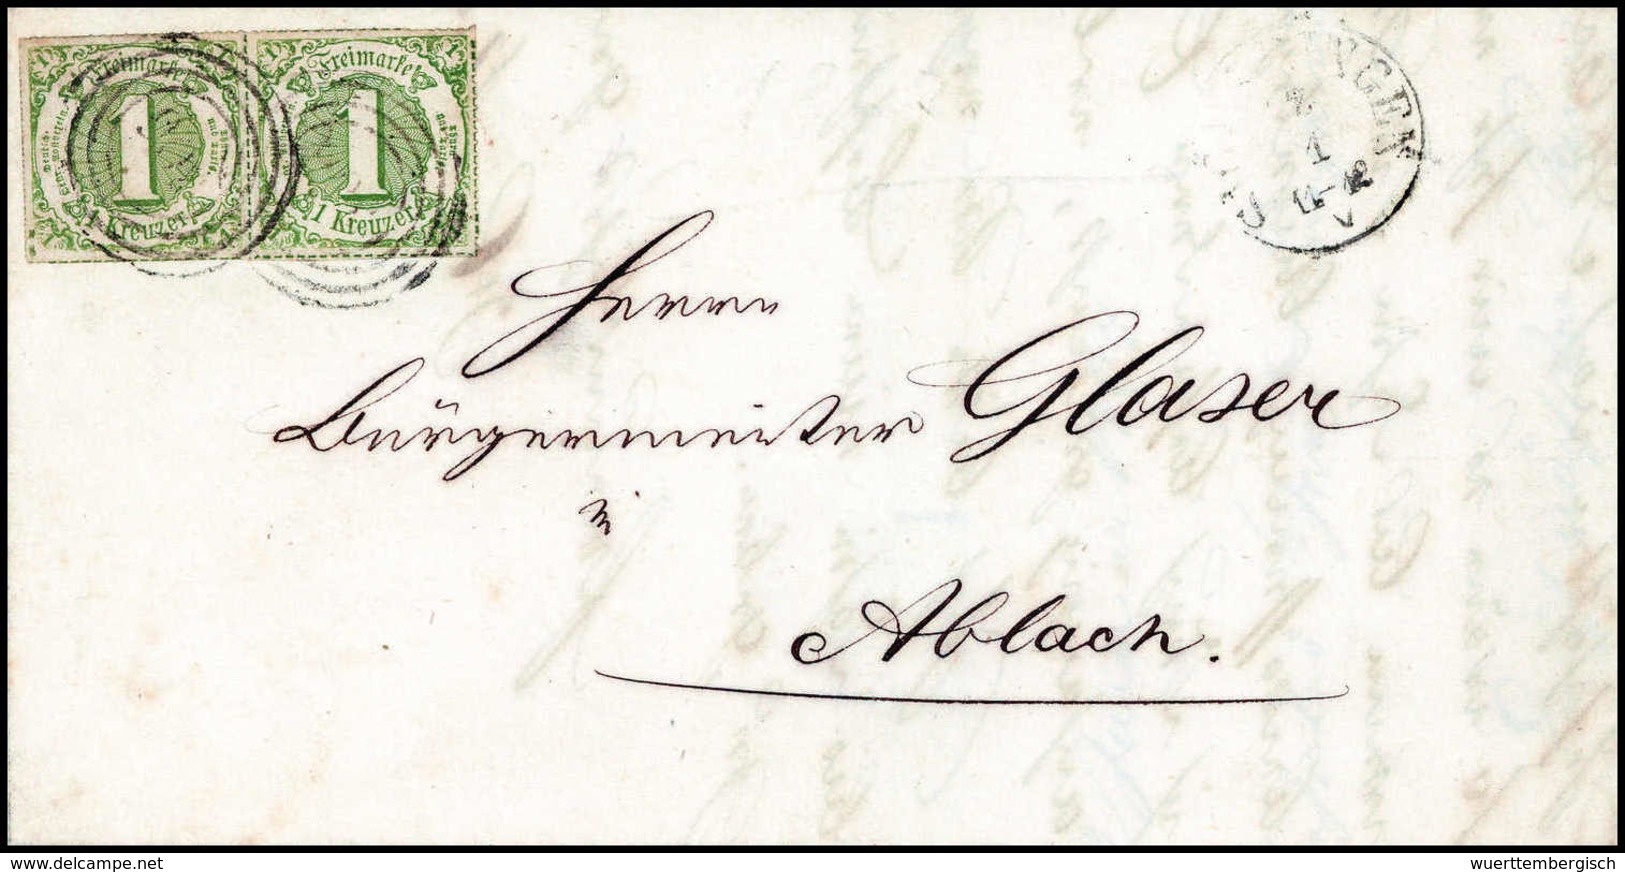 Freimarke Freimarke
1 1
1 Kreuzer. 1 Kreuzer.
INGEN
1
11-12
V
Herrn
Bürgermeister Glaser
in
Ablach.
www.delcampe.net
wuerttembergisch